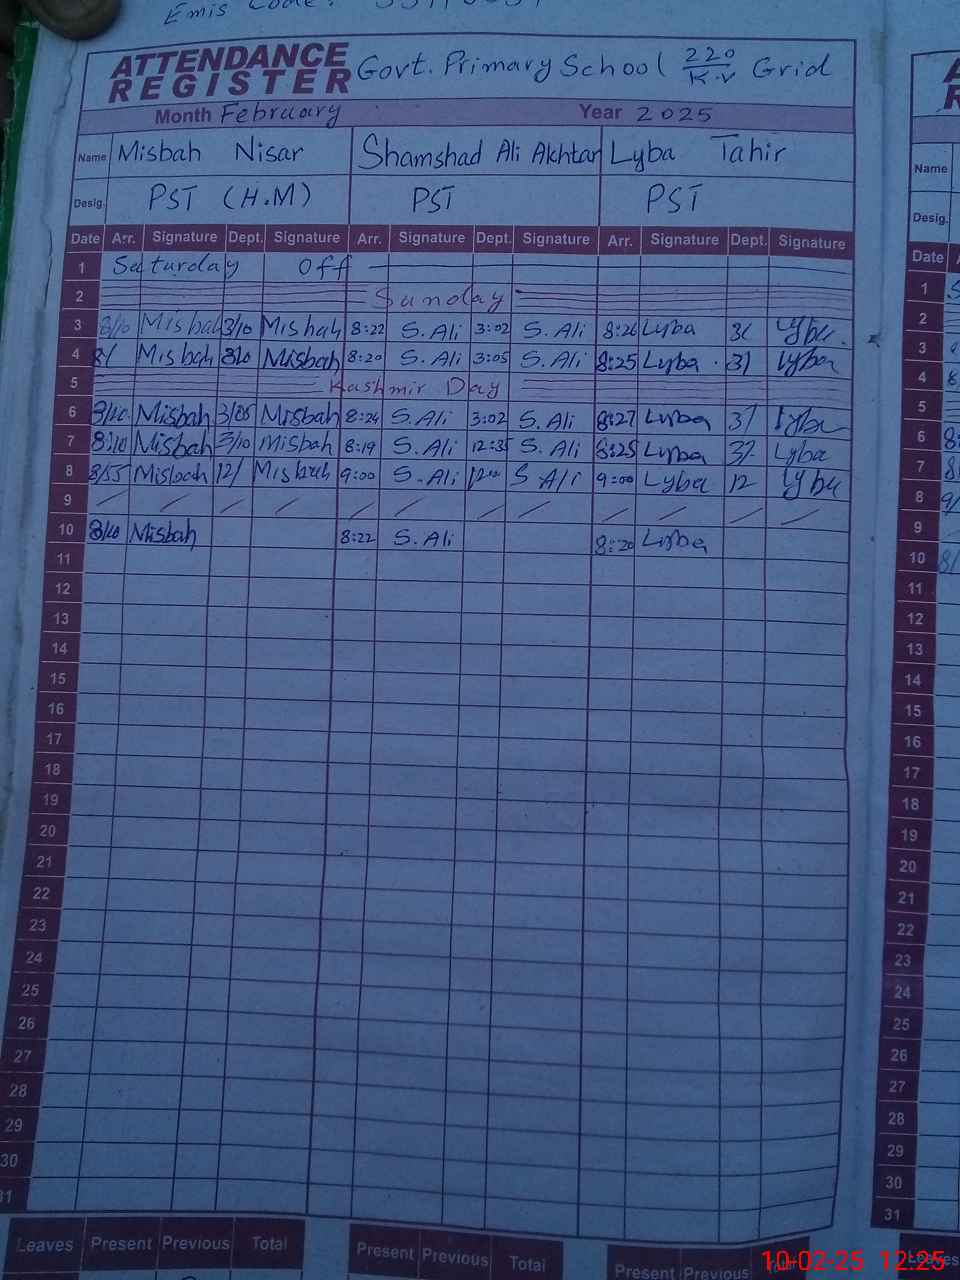 Emis Code:
ATTENDANCE REGISTER Govt. Primary School 220 K.V Grid
Month February Year 2025
Name Misbah Nisar Shamshad Ali Akhtar Lyba Tahir
Desig. PST (H.M) PST PST
Date Arr. Signature Dept. Signature Arr. Signature Dept. Signature Arr. Signature Dept. Signature
1 Saturday Off
2 Sunday
3 8/10 Misbah 3/10 Misbah 8:22 S.Ali 3:02 S.Ali 8:26 Lyba Lyba
4 Misbah Misbah 8:20 S.Ali 3:05 S.Ali 8:25 Lyba Lyba
5 Kashmir Day
6 Misbah 3/05 Misbah 8:24 S.Ali 3:02 S.Ali 8:27 Lyba Lyba
7 8:10 Misbah 3/10 Misbah 8:19 S.Ali 12:35 S.Ali 8:25 Lyba Lyba
8 8/55 Misbah 12/ Misbah 9:00 S.Ali 12:00 S Ali 9:00 Lyba 12 Lyba
9
10 Misbah 8:22 S.Ali 8:20 Lyba
11
12
13
14
15
16
17
18
19
20
21
22
23
24
25
26
27
28
29
30
31
Leaves Present Previous Total Present Previous Total Present Previous
Name
Desig.
Date
1
2
3
4
5
6
7
8
9
10
11
12
13
14
15
16
17
18
19
20
21
22
23
24
25
26
27
28
29
30
31
Leaves
10-02-25 12:25